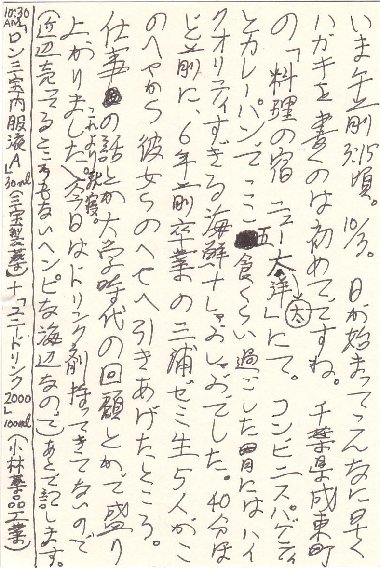 いま午前3:15頃。10/3。日が始まってこんなに早く
ハガキを書くのは初めてですね。千葉県成東町
の「料理の宿 ニュー大洋」にて。コンビニスパゲティ
太
とカレーパンでここ五食くらい過ごした胃にはハイ
クオリティすぎる海鮮+しゃぶしゃぶでした。40分ほ
ど前に、6年前卒業の三浦ゼミ生5人がこ
のへやから彼女らのへやへ引きあげたところ。
仕事の話とか大学時代の回顧とかで盛り
上がりました(これより就寝)。今日はドリンク剤持ってきてないので
(近辺売ってるところもないヘンピな海辺なので)あとで記します。
10:30AM「ロン三宝内服液A」30ml(三宝製薬)+「ユニードリンク2000」100ml(小林薬品工業)